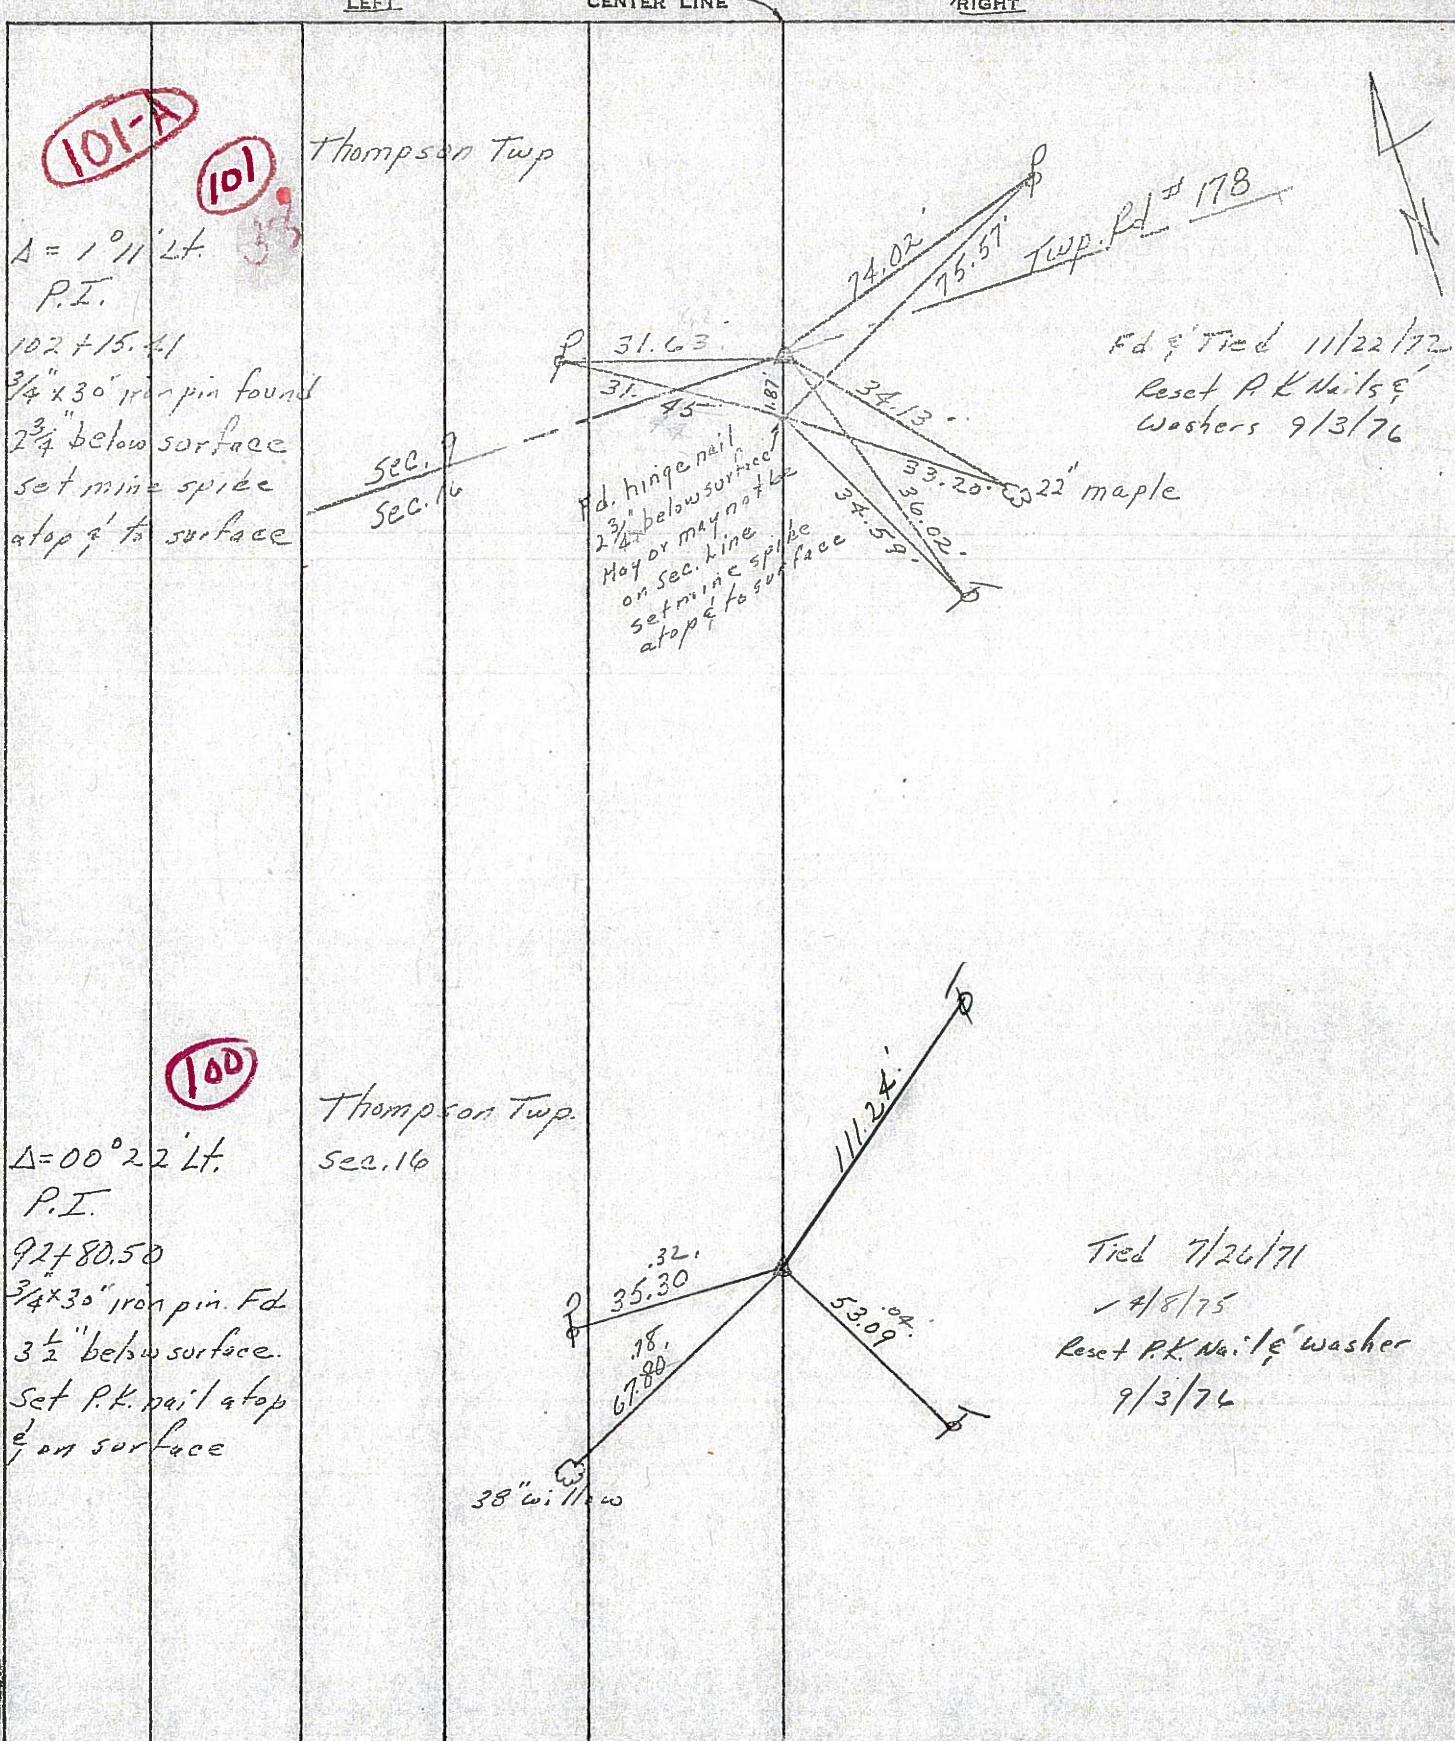 LEFT
CENTER LINE
RIGHT
101-A
101
Thompson Twp
Δ = 1°11' Lt.
P.I.
102+15.41
3/4" x 30" iron pin found
2 3/4" below surface
set mine spike
atop & to surface
74.02'
75.57'
Twp. Rd # 178
N
31.63'
31.45
1.87'
34.13
33.20
36.02
34.59
22" maple
Sec. 9
Sec. 16
Fd. hinge nail
2 3/4" below surface
May or may not be
on Sec. Line
set mine spike
atop & to surface
Fd & Tied 11/22/72
Reset P.K Nails &
Washers 9/3/76
100
Thompson Twp.
Sec. 16
Δ=00°22' Lt.
P.I.
92+80.50
3/4" x 30" iron pin. Fd
3 1/2" below surface.
Set P.K. nail atop
& on surface
111.24'
.32'
35.30
.78'
67.80
.04'
53.09
38" willow
Tied 7/26/71
✓ 4/8/75
Reset P.K. Nail & Washer
9/3/76